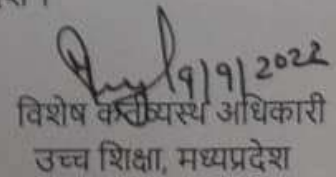 19/9/2022
विशेष कर्तव्यस्थ अधिकारी
उच्च शिक्षा, मध्यप्रदेश